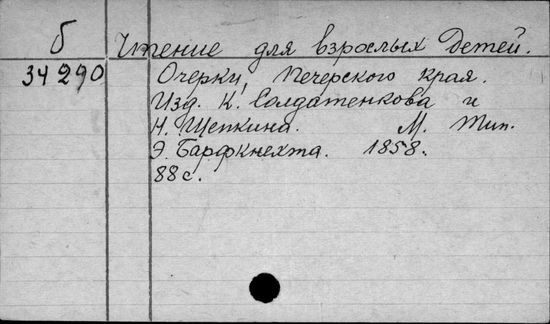 б Чтение для взрослых детей.
34 290 Очерки Печерского края.
Изд. К. Солдатенкова и
Н. Щепкина. М. Тип.
Э. Барфкнехта. 1858.
88 с.